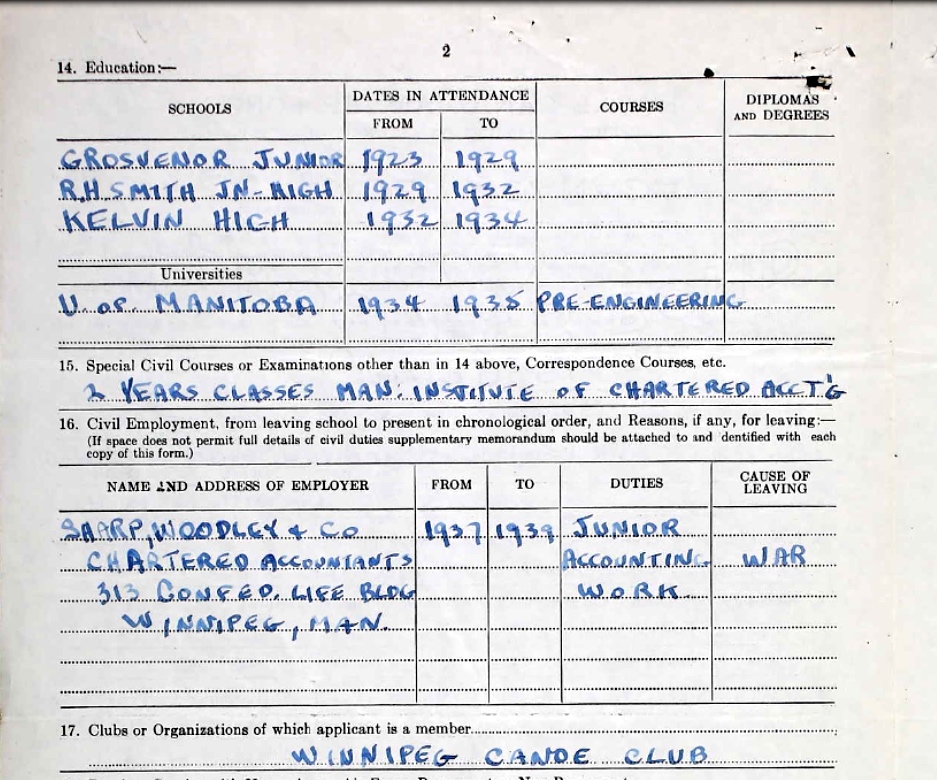 2
14. Education:—
SCHOOLS DATES IN ATTENDANCE COURSES DIPLOMAS AND DEGREES
FROM TO
GROSVENOR JUNIOR 1923 1929
R.H SMITH JN-HIGH 1929 1932
KELVIN HIGH 1932 1934
Universities
U. of. MANITOBA 1934 1935 PRE-ENGINEERING
15. Special Civil Courses or Examinations other than in 14 above, Correspondence Courses, etc.
2 YEARS CLASSES MAN. INSTITUTE OF CHARTERED ACCT'G
16. Civil Employment, from leaving school to present in chronological order, and Reasons, if any, for leaving:—
(If space does not permit full details of civil duties supplementary memorandum should be attached to and dentified with each
copy of this form.)
NAME AND ADDRESS OF EMPLOYER FROM TO DUTIES CAUSE OF LEAVING
SHARP, WOODLEY & CO 1937 1939 JUNIOR
CHARTERED ACCOUNTANTS ACCOUNTING WAR
313 CONFED. LIFE BLDG WORK
WINNIPEG, MAN.
17. Clubs or Organizations of which applicant is a member
WINNIPEG CANOE CLUB